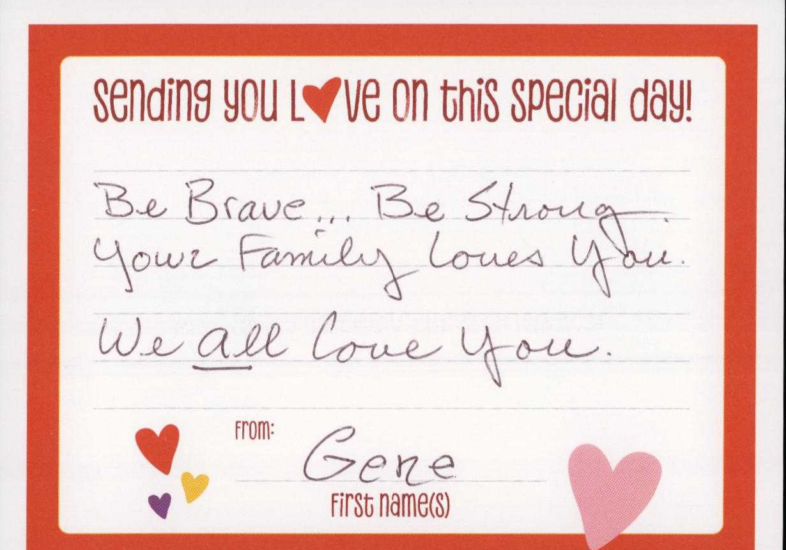 sending you Love on this special day!
Be Brave... Be Strong
Your Family Loves You.
We all Love You.
From:
Gene
First name(s)